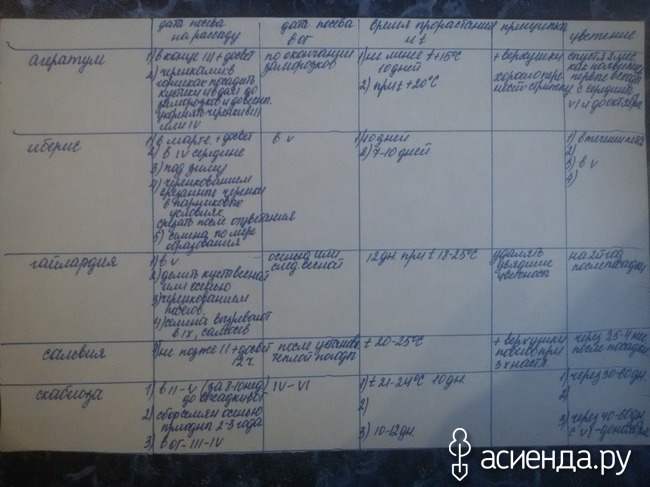 дата посева на рассаду
дата посева в ог
время прорастания и t
прищипка
цветение
агератум
1) в конце III + досвет
2) черенками: в горшках посадить кустики и в дом до
заморозков и до весны.
укоренять черенки в III
или IV
по окончании
заморозков
1) не менее t +15°C
10 дней
2) при t +20°C
+ верхушки
хорошо пере-
носит стрижку
спустя 2 мес
первые
с середины
VI и до октября
иберис
1) в марте + досвет
2) в IV середине
3) под зиму
4) черенкованием
черенки
в парниковые
условиях
срезать после отцветания
5) семена по мере
образования
в V
1) 10 дней
2) 7-10 дней
1) в течении лета
2)
3) в V
4)
гайлардия
1) в V
2) делить куст весной
или осенью
3) черенкованием
побегов
4) семена вызревают
в IX, самосев
осенью или
след. весной
12 дн. при t 18-25°C
удалять
увядшие
цветоносы
на 2й год
после посадки
сальвия
1) не позже II + досвет
12 ч.
после установ.
теплой погоды
t 20-25°C
+ верхушки
побегов при
3х настя.
через 3,5-4 мес
после посадки
скабиоза
1) в II-V (за 8-10 нед.
до высадки в ог)
2) сбор семян осенью
пригодны 2-3 года
3) в ог - III-IV
IV-VI
1) t 21-24°C 10 дн.
2)
3) 10-12 дн.
1) через 50-60 дн.
2)
3) через 40-60 дн.
с VI - до ноября
асиенда.ру